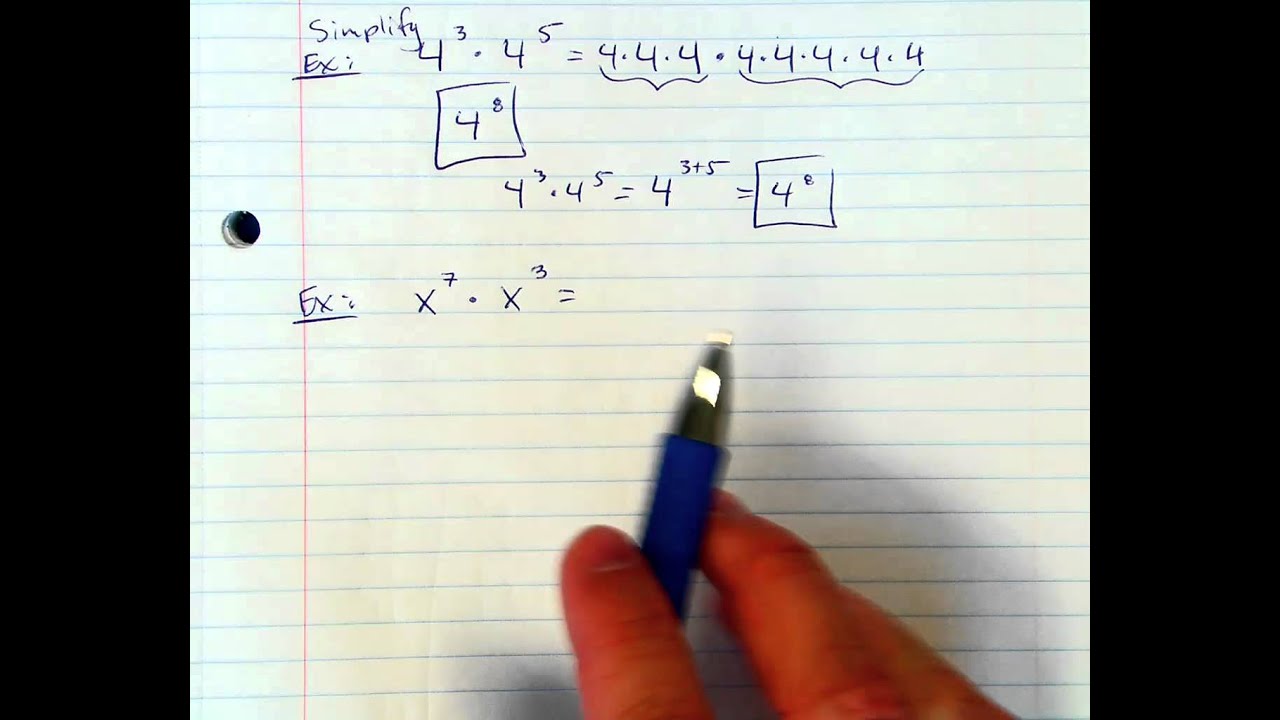 Simplify
Ex: 4³ · 4⁵ = 4·4·4 · 4·4·4·4·4
4⁸
4³ · 4⁵ = 4³⁺⁵ = 4⁸
Ex: x⁷ · x³ =